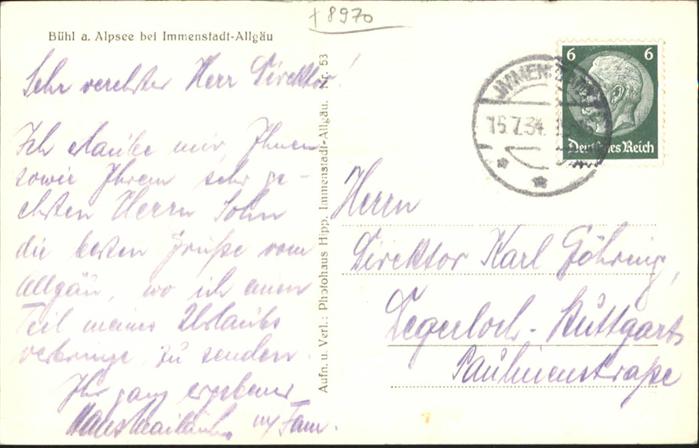 +8970
Bühl a. Alpsee bei Immenstadt-Allgäu
Sehr verehrter Herr Direktor!
Ich erlaube mir, Ihnen
sowie Ihrem sehr ge-
ehrten Herrn Sohn
die besten Grüße vom
Allgäu, wo ich einen
Teil meines Urlaubs
verbringe zu senden.
Ihr ganz ergebener
m/ Fam.
Aufn. u. Verl.: Photohaus Hipp, Immenstadt-Allgäu. Nr. 53
15.7.34.
6 6
Deutsches Reich
Herrn
Direktor Karl Göhring,
Degerloch-Stuttgart
Paulinenstraße